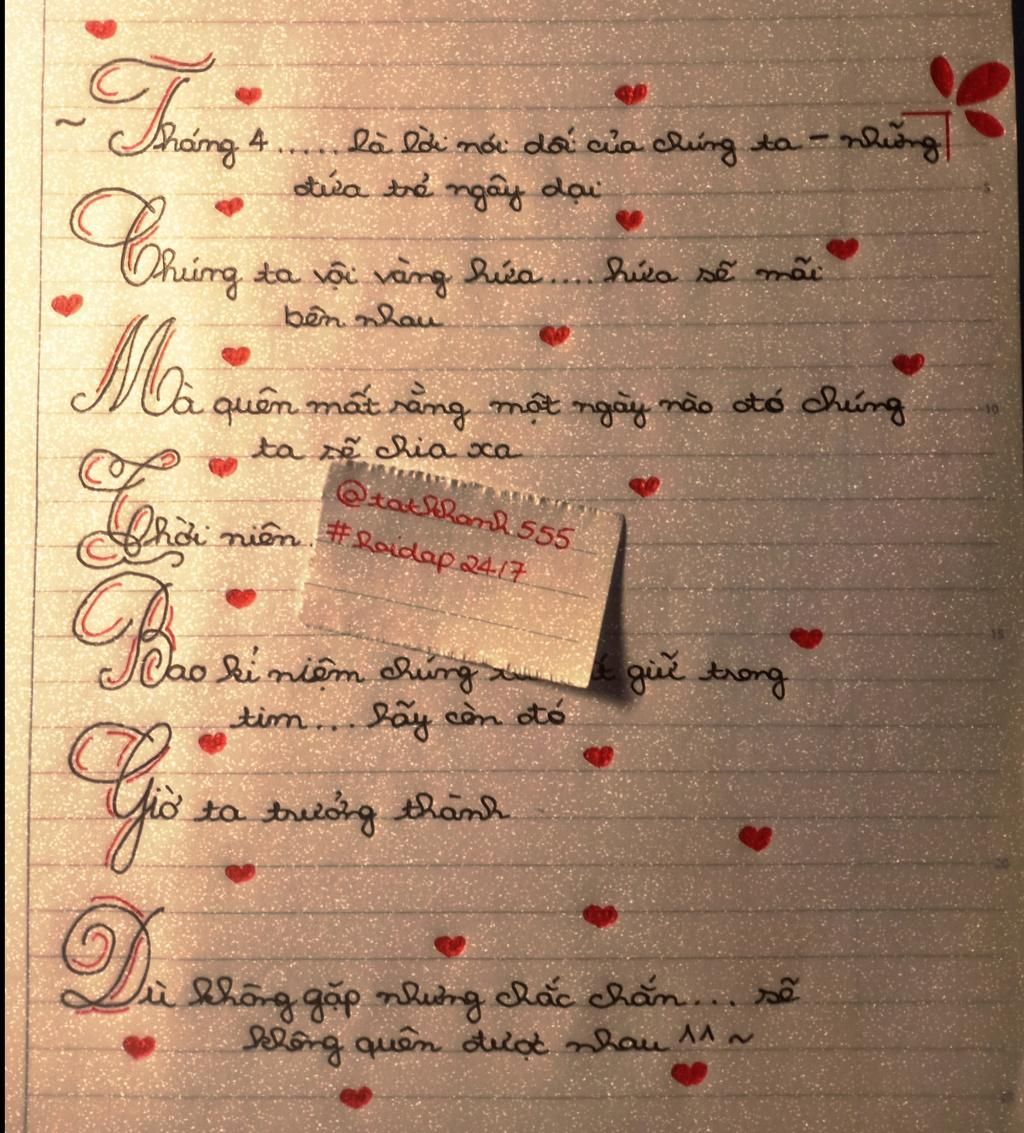 ~ Tháng 4 ..... là lời nói dối của chúng ta - những
đứa trẻ ngây dại
Chúng ta vội vàng hứa .... hứa sẽ mãi
bên nhau
Mà quên mất rằng một ngày nào đó chúng
ta sẽ chia xa
@tatkhanh555
#hoidap247
Thời niên
Bao kỉ niệm chúng giữ trong
tim... hãy còn đó
Giờ ta trưởng thành
Dù không gặp nhưng chắc chắn... sẽ
không quên được nhau ^^ ~
5
10
15
20